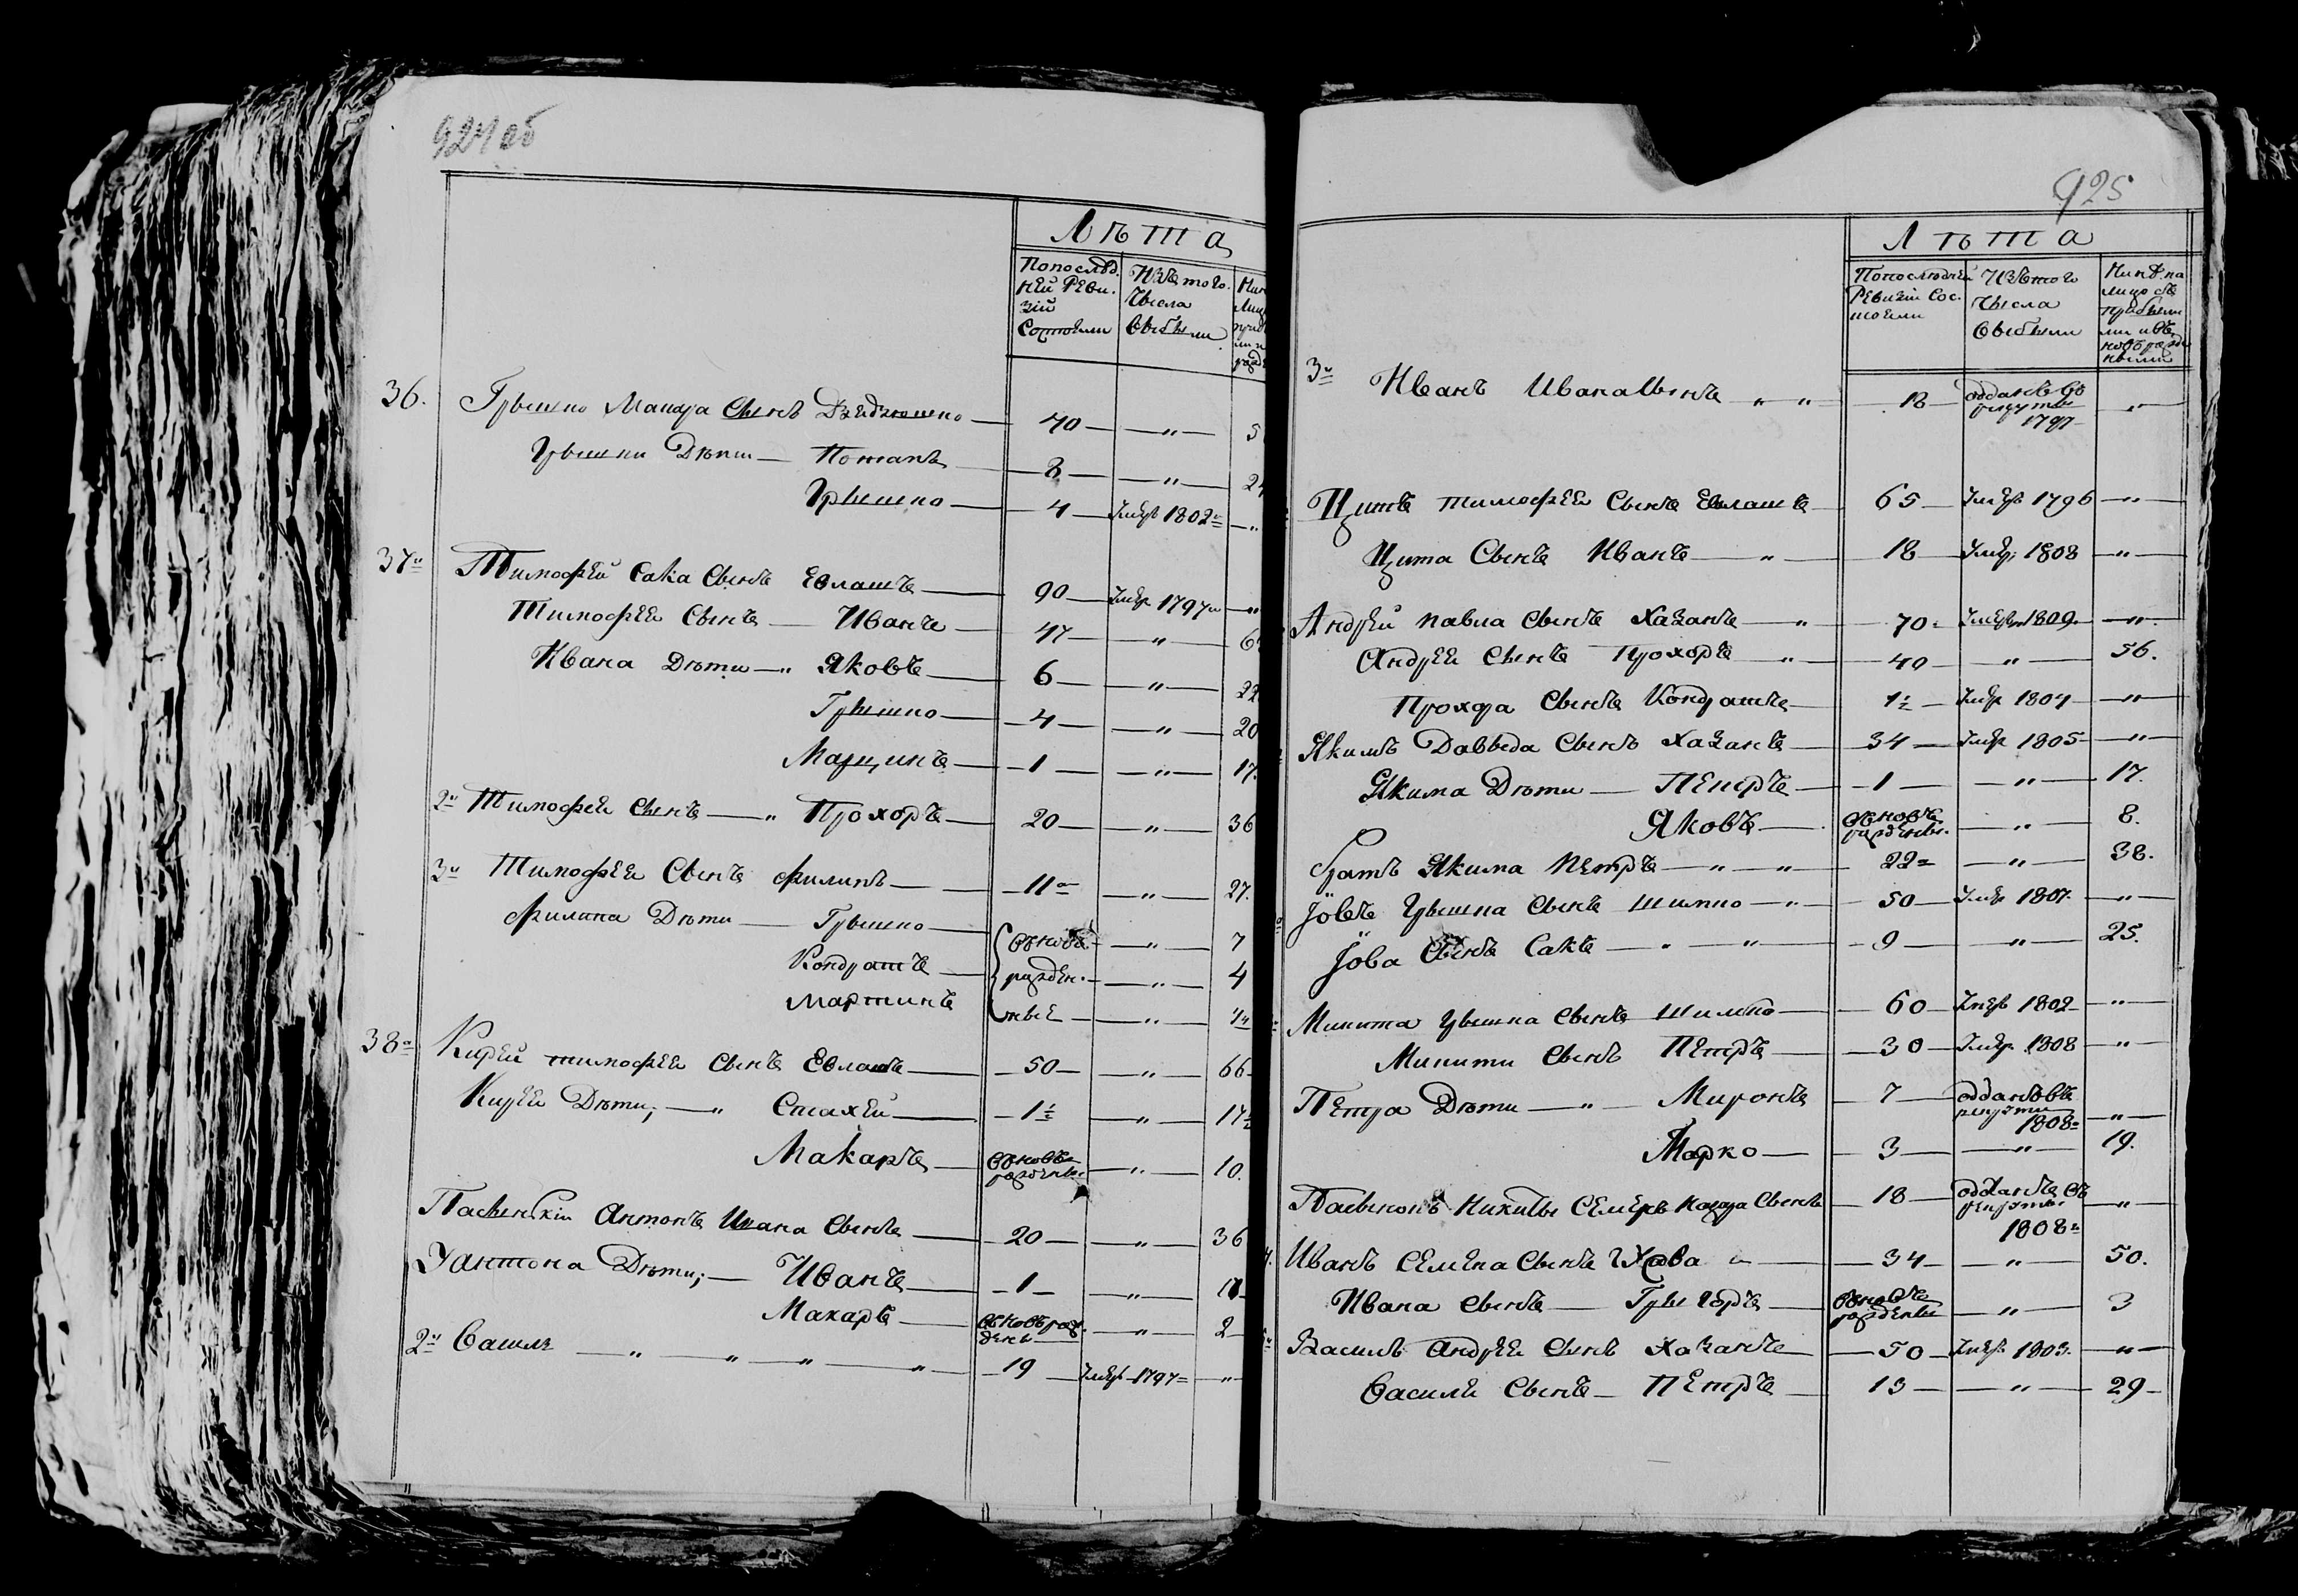 924 об
Лѣта
Попослѣд. Изъ того.
ней Реви. Числа
зіи
Состояли выбыли
36. Грышко Макара Сынъ Дзедзюшко 40 — „ —
Грышки Дѣти — Потапъ 8 — „ —
Грышко 4 Умеръ 1802
37 Тимофей Сака Сынъ Евлашъ 90 Умер 1797 „
Тимофея Сынъ — Иванъ 47 „
Ивана Дѣти — „ Яковъ 6 — „ — 22
Грышко 4 — „ — 20
Марцинъ 1 — „ — 17.
2 Тимофея Сынъ — „ Прохоръ 20 — „ — 36
3 Тимофея Сынъ Филипъ 11 — „ — 27.
Филипа Дѣти — Грышко вновь — „ — 7
Кондратъ рожден. — „ — 4
Мартинъ ные — „ —
38 Кирей тимофея Сынъ Евлашъ 50 — „ — 66
Кирея Дѣти; — „ Стахей 1½ — „ — 17½
Макаръ вновь рожденъ. — „ — 10.
Антонъ Ивана Сынъ 20 — „ — 36
Уантона Дѣти; — Иванъ 1 — „ —
Макаръ вновьрож. денъ — „ — 2
2 Василь — „ — „ — „ — „ 19 Умер 1797 „
925
Лѣта
Попослѣдней Изътого
Ревизіи Сос. Числа
тояли выбыли
Нынѣ на лицо съ прибыли ми и въ новь рожде ными
3 Иванъ Ивана Сынъ „ „ 18 отданъ въ рекруты 1797 „
Цитъ тимофея Сынъ Евлашъ 65 Умеръ 1796 „
Цита Сынъ Иванъ — „ 18 Умер. 1808 „
Андрей Павла Сынъ Хазанъ — „ 70. Умеръ 1809. „
Андрея Сынъ Прохоръ „ 40 — „ — 56.
Прохора Сынъ Кондратъ 1½ Умер 1804 „
Якимъ Давыда Сынъ Хазанъ 34 Умер 1805 „
Якима Дѣти — Петръ 1 — „ — 17.
Яковъ вновь рожденъ. — „ — 8.
братъ Якима Петръ — „ — „ 22 — „ — 38.
Іовъ Грышка Сынъ Шимко — „ 50 Умер 1807. „
Іова Сынъ Сакъ — „ — „ 9 — „ — 25.
Микита Грышка Сынъ Шимко 60 Умеръ 1802 „
Микиты Сынъ Петръ 30 Умер. 1808 „
Петра Дѣти — „ — Миронъ 7 отданъ въ рекруты 1808 „
Марко 3 — „ — 19.
Пасынокъ Никиты Семенъ Сынъ 18 отданъ въ рекруты 1808 „
Иванъ Семена Сынъ 34 — „ — 50.
Ивана Сынъ — Грыгоръ вновь рожденъ — „ — 3
Василь Андрея Сынъ Хазанъ 50 Умер. 1803. „
Василя Сынъ — Петръ 13 — „ — 29